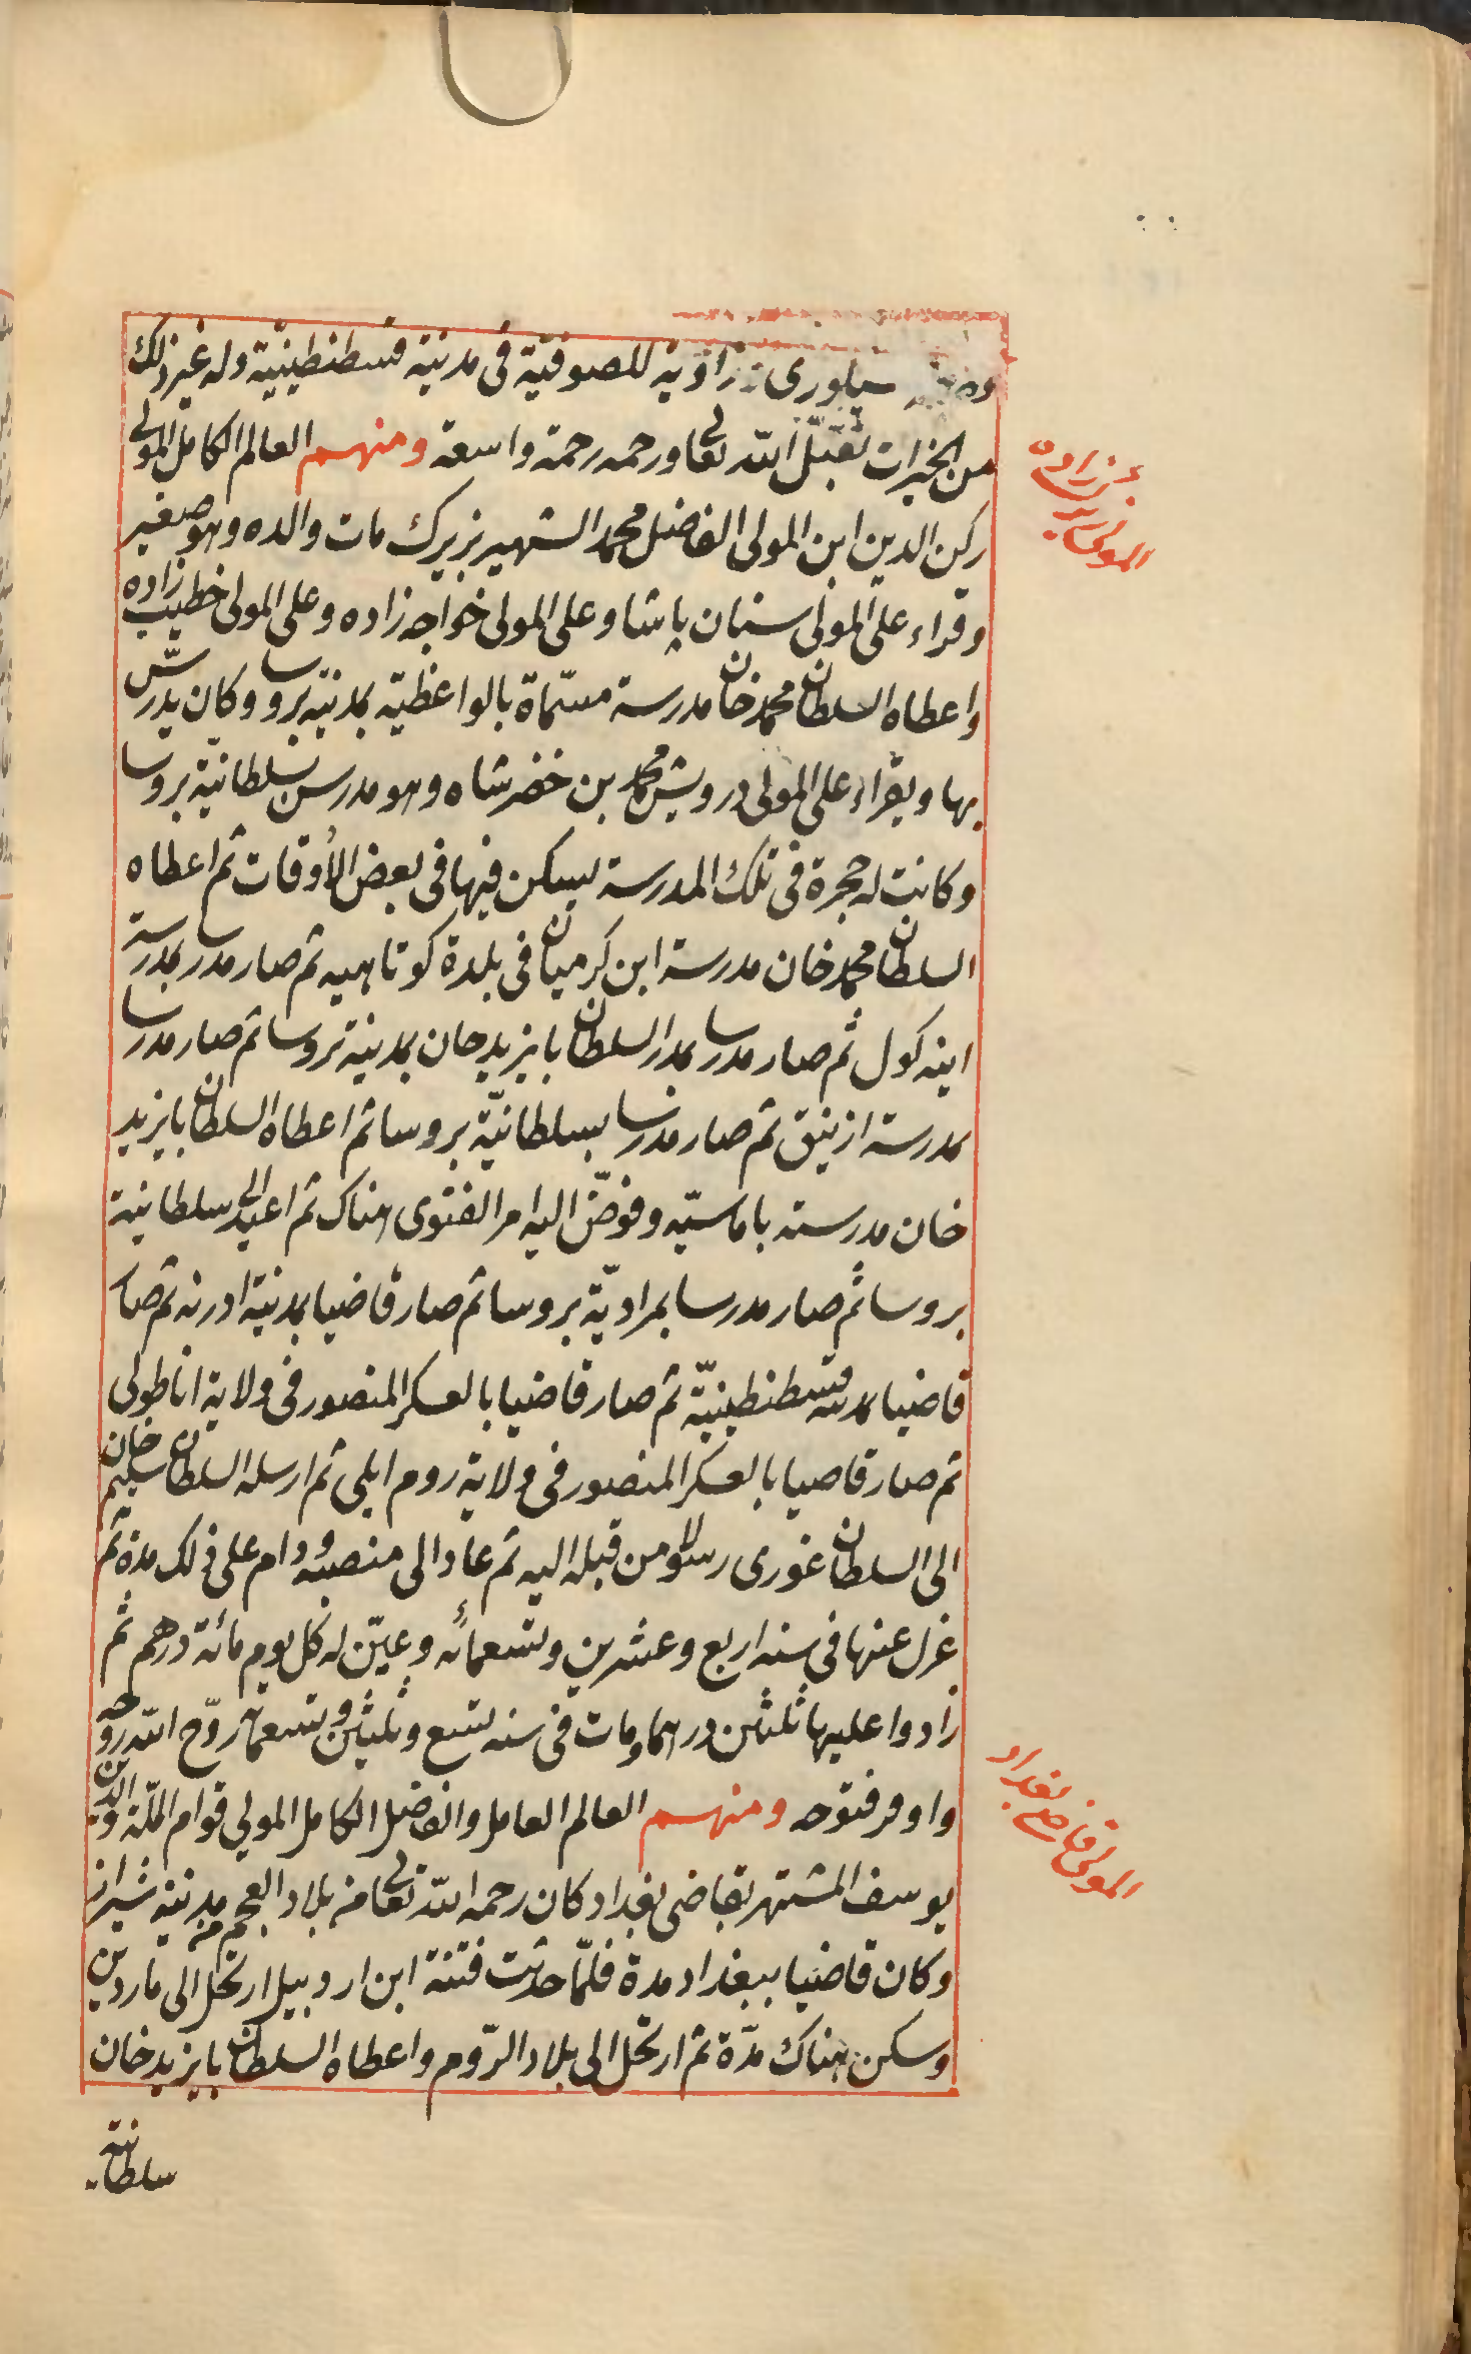 سيلورى زاوية للصوفية فى مدينة قسطنطينية وله غير ذلك
من الخيرات تقبّل الله تعالى ورحمه رحمة واسعة ومنهم العالم الكامل المولى
ركن الدين ابن المولى الفاضل محمد الشهير بزيرك مات والده وهو صغير
وقراء على المولى سنان پاشا وعلى المولى خواجه زاده وعلى المولى خطيب زاده
واعطاه السلطان محمد خان مدرسة مسمّاة بالواعظية بمدينة بروسا وكان يدرّس
بها ويقراء على المولى درويش محمد بن خضر شاه وهو مدرس بسلطانية بروسا
وكانت له حجرة فى تلك المدرسة يسكن فيها فى بعض الأوقات ثم اعطاه
السلطان محمد خان مدرسة ابن كرميان فى بلدة كوتاهيه ثم صار مدرسا بمدرسة
اينه كول ثم صار مدرسا بمدر السلطان بايزيد خان بمدينة بروسا ثم صار مدرسا
بمدرسة ازنيق ثم صار مدرسا بسلطانيّة بروسا ثم اعطاه السلطان بايزيد
خان مدرسته باماسيّه وفوّض اليه امر الفتوى هناك ثم اعيد الى سلطانية
بروسا ثم صار مدرسا بمراديّة بروسا ثم صار قاضيا بمدينة ادرنه ثم صار
قاضيا بمدينة قسطنطينيّة ثم صار قاضيا بالعسكر المنصور فى ولاية اناطولى
ثم صار قاضيا بالعسكر المنصور فى ولاية روم ايلى ثم ارسله السلطان سليم خان
الى السلطان غورى رسولا من قبله اليه ثم عاد الى منصبه ودام على ذلك مدة ثم
عزل عنها فى سنه اربع وعشرين وتسعمائه وعيّن له كل يوم مائة درهم ثم
زادوا عليها ثلثين درهما ومات فى سنه تسع وثلثين وتسعمائة روّح الله روحه
واوفر فتوحه ومنهم العالم العامل والفاضل الكامل المولى قوام الملّة والدين
يوسف المشتهر بقاضى بغداد كان رحمه الله تعالى من بلاد العجم من مدينة شيراز
وكان قاضيا ببغداد مدة فلمّا حدثت فتنة ابن اردبيل ارتحل الى ماردين
وسكن هناك مدّة ثم ارتحل الى بلاد الرّوم واعطاه السلطان بايزيد خان
سلطانية
المولى زيرك زاده
المولى قاضى بغداد